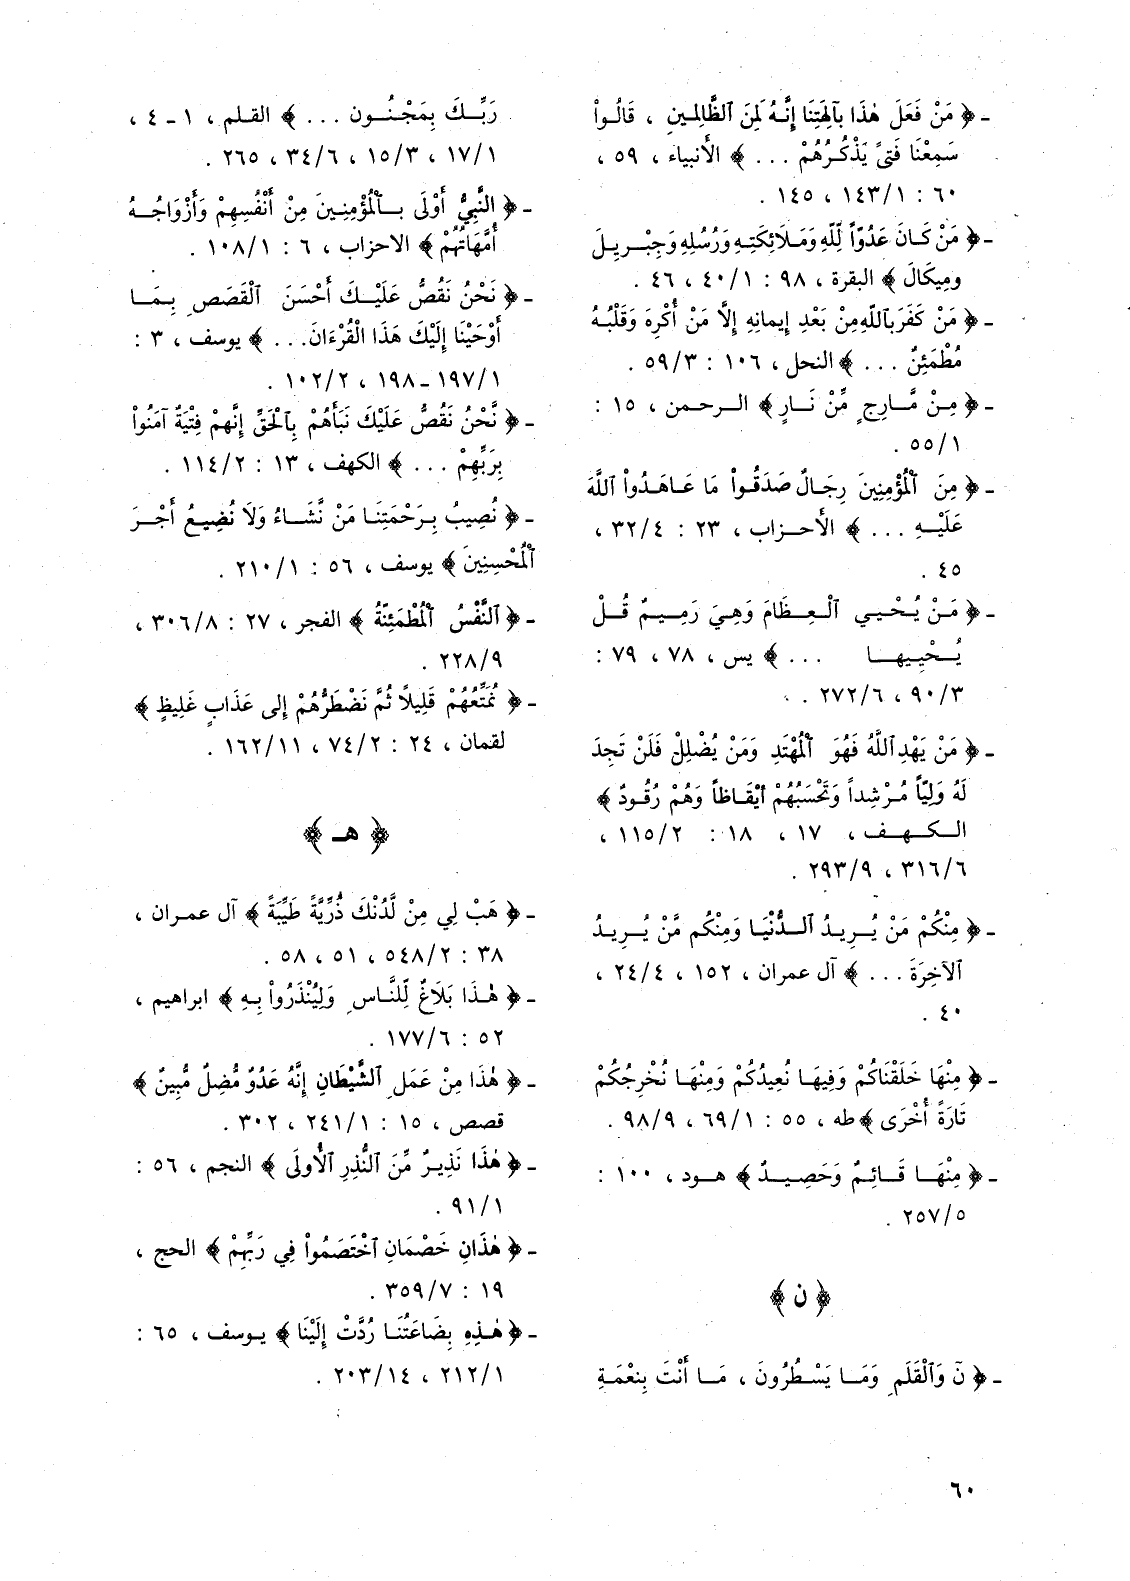 - ﴿ مَنْ فَعَلَ هٰذَا بآلِهَتِنَا إِنَّهُ لَمِنَ ٱلظَّالِمـين ، قَالُواْ
سَمِعْنَا فَتىً يَذْكُـرُهُمْ ... ﴾ الأنبياء ، ٥٩ ،
٦٠ : ١٤٣/١ ، ١٤٥ .
- ﴿ مَنْ كَـانَ عَدُوّاً لِّلّهِ وَمَـلَائِكَتِـهِ وَرُسُلِهِ وَجِبْـرِيـلَ
وميكَالَ ﴾ البقرة ، ٩٨ : ٤٠/١ ، ٤٦ .
- ﴿ مَنْ كَفَرَ بآللّهِ مِنْ بَعْدِ إيمانِهِ إلَّا مَنْ أُكْرِهَ وَقَلْبُـهُ
مُطْمَئِنٌ ... ﴾ النحل ، ١٠٦ : ٥٩/٣ .
- ﴿ مِـنْ مَّـارِجٍ مِّنْ نَـارٍ ﴾ الـرحمـن ، ١٥ :
٥٥/١ .
- ﴿ مِنَ ٱلْمُؤْمِنِينَ رِجَـالٌ صَدَقُـواْ مَا عَـاهَـدُواْ ٱللَّهَ
عَلَيْـهِ ... ﴾ الأحـزاب ، ٢٣ : ٣٢/٤ ،
٤٥ .
- ﴿ مَـنْ يُـحْـيـي ٱلْـعِـظَامَ وَهِـيَ رَمِـيـمٌ قُـلْ
يُـحْيِـيهـا ... ﴾ يس ، ٧٨ ، ٧٩ :
٩٠/٣ ، ٢٧٢/٦ .
- ﴿ مَنْ يَهْدِ ٱللَّهُ فَهُوَ ٱلْمُهْتَدِ وَمَنْ يُضْلِلْ فَلَنْ تَجِدَ
لَهُ وَلِيّاً مُـرْشِداً وَتَحْسَبُهُمْ أيْقَـاظاً وَهُمْ رُقُـودٌ ﴾
الـكـهـف ، ١٧ ، ١٨ : ١١٥/٢ ،
٣١٦/٦ ، ٢٩٣/٩ .
- ﴿ مِنْكُمْ مَنْ يُـرِيـدُ ٱلـدُّنْيَـا وَمِنْكُم مَّنْ يُـرِيـدُ
ٱلآخِرَةَ ... ﴾ آل عمران ، ١٥٢ ، ٢٤/٤ ،
٤٠ .
- ﴿ مِنْهَا خَلَقْنَاكُمْ وَفِيهَـا نُعِيدُكُمْ وَمِنْهَـا نُخْرِجُكُمْ
تَارَةً أُخْرَى ﴾ طه ، ٥٥ : ٦٩/١ ، ٩٨/٩ .
- ﴿ مِنْهَـا قَـائِـمٌ وَحَصِيـدٌ ﴾ هـود ، ١٠٠ :
٢٥٧/٥ .
﴿ ن ﴾
- ﴿ نَ وَٱلْقَلَمِ وَمَـا يَسْـطُرُونَ ، مَـا أَنْتَ بِنعْمَـةِ
رَبِّـكَ بِمَجْنُـون ... ﴾ القـلم ، ١ - ٤ ،
١٧/١ ، ١٥/٣ ، ٣٤/٦ ، ٢٦٥ .
- ﴿ النَّبِيُّ أَوْلَى بـٱلْمُؤْمِنِـينَ مِنْ أَنْفُسِهِمْ وَأَزْوَاجُـهُ
أُمَّهَاتُهُمْ ﴾ الاحزاب ، ٦ : ١٠٨/١ .
- ﴿ نَحْنُ نَقُصُّ عَلَيْـكَ أَحْسَنَ ٱلْقَصَصِ بِـمَـا
أَوْحَيْنَا إِلَيْكَ هَذَا الْقُرْءَانَ... ﴾ يوسف ، ٣ :
١٩٧/١ - ١٩٨ ، ١٠٢/٢ .
- ﴿ نَّحْنُ نَقُصُّ عَلَيْكَ نَبَأَهُمْ بِآلْحَقِّ إِنَّهمْ فِتْيَةٌ آمَنُواْ
بِرَبِّهِمْ ... ﴾ الكهف ، ١٣ : ١١٤/٢ .
- ﴿ نُصِيبُ بِـرَحْمَتِنَـا مَنْ نَّشَـاءُ وَلَا نُضِيعُ أَجْـرَ
ٱلْمُحْسِنِينَ ﴾ يوسف ، ٥٦ : ٢١٠/١ .
- ﴿ ٱلنَّفْسُ ٱلْمُطْمَئِنَّةُ ﴾ الفجر ، ٢٧ : ٣٠٦/٨ ،
٢٢٨/٩ .
- ﴿ نُمَتِّعُهُمْ قَلِيلًا ثُمَّ نَضْطَرُّهُمْ إلى عَذَابٍ غَلِيظٍ ﴾
لقمان ، ٢٤ : ٧٤/٢ ، ١٦٢/١١ .
﴿ هـ ﴾
- ﴿ هَبْ لِي مِنْ لَّدُنْكَ ذُرِّيَّةً طَيِّبَةً ﴾ آل عمـران ،
٣٨ : ٥٤٨/٢ ، ٥١ ، ٥٨ .
- ﴿ هٰـذَا بَلَاغٌ لِّلنَّـاسِ وَلِيُنْذَرُواْ بِـهِ ﴾ ابراهيم ،
٥٢ : ١٧٧/٦ .
- ﴿ هٰذَا مِنْ عَمَلِ ٱلشَّيْطَانِ إِنَّهُ عَدُوٌ مُّضِلٌ مُّبِينٌ ﴾
قصص ، ١٥ : ٢٤١/١ ، ٣٠٢ .
- ﴿ هٰذَا نَذِيـرٌ مِّنَ ٱلنُّذُرِ ٱلْأُولَى ﴾ النجم ، ٥٦ :
٩١/١ .
- ﴿ هٰذَانِ خَصْمَانِ ٱخْتَصَمُواْ فِي رَبِّهِمْ ﴾ الحج ،
١٩ : ٣٥٩/٧ .
- ﴿ هٰـذِهِ بِضَاعَتُنَـا رُدَّتْ إِلَيْنَا ﴾ يـوسف ، ٦٥ :
٢١٢/١ ، ٢٠٣/١٤ .
٦٠